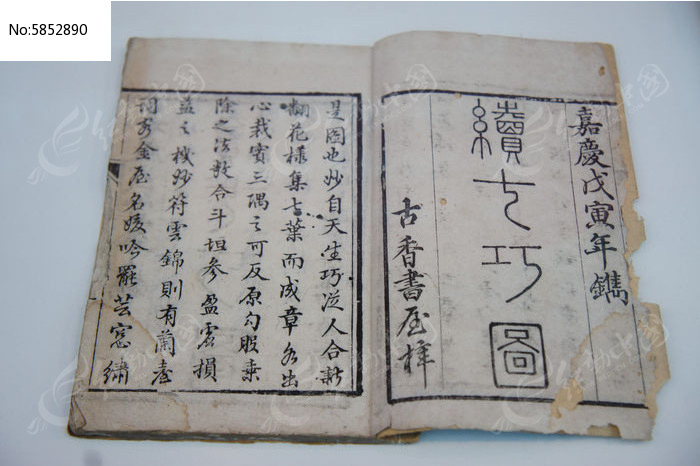 No:5852890
嘉慶戊寅年鐫
續七巧圖
古香書屋梓
是圖也妙自天生巧從人合新
翻花樣集七葉而成章各出
心裁實三隅之可反原勾股乘
除之法數合斗坦參盈虛損
益之機妙符雲錦則有蘭臺
詞客金屋名媛吟罷芸窓繡